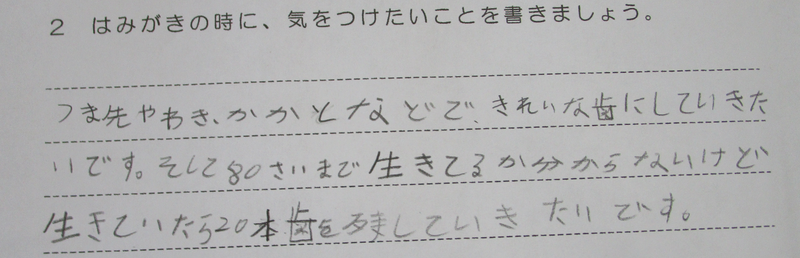 2 はみがきの時に、気をつけたいことを書きましょう。
つま先やわき、かかとなどで、きれいな歯にしていきた
いです。そして80さいまで生きてるか分からないけど
生きていたら20本歯を残していきたいです。